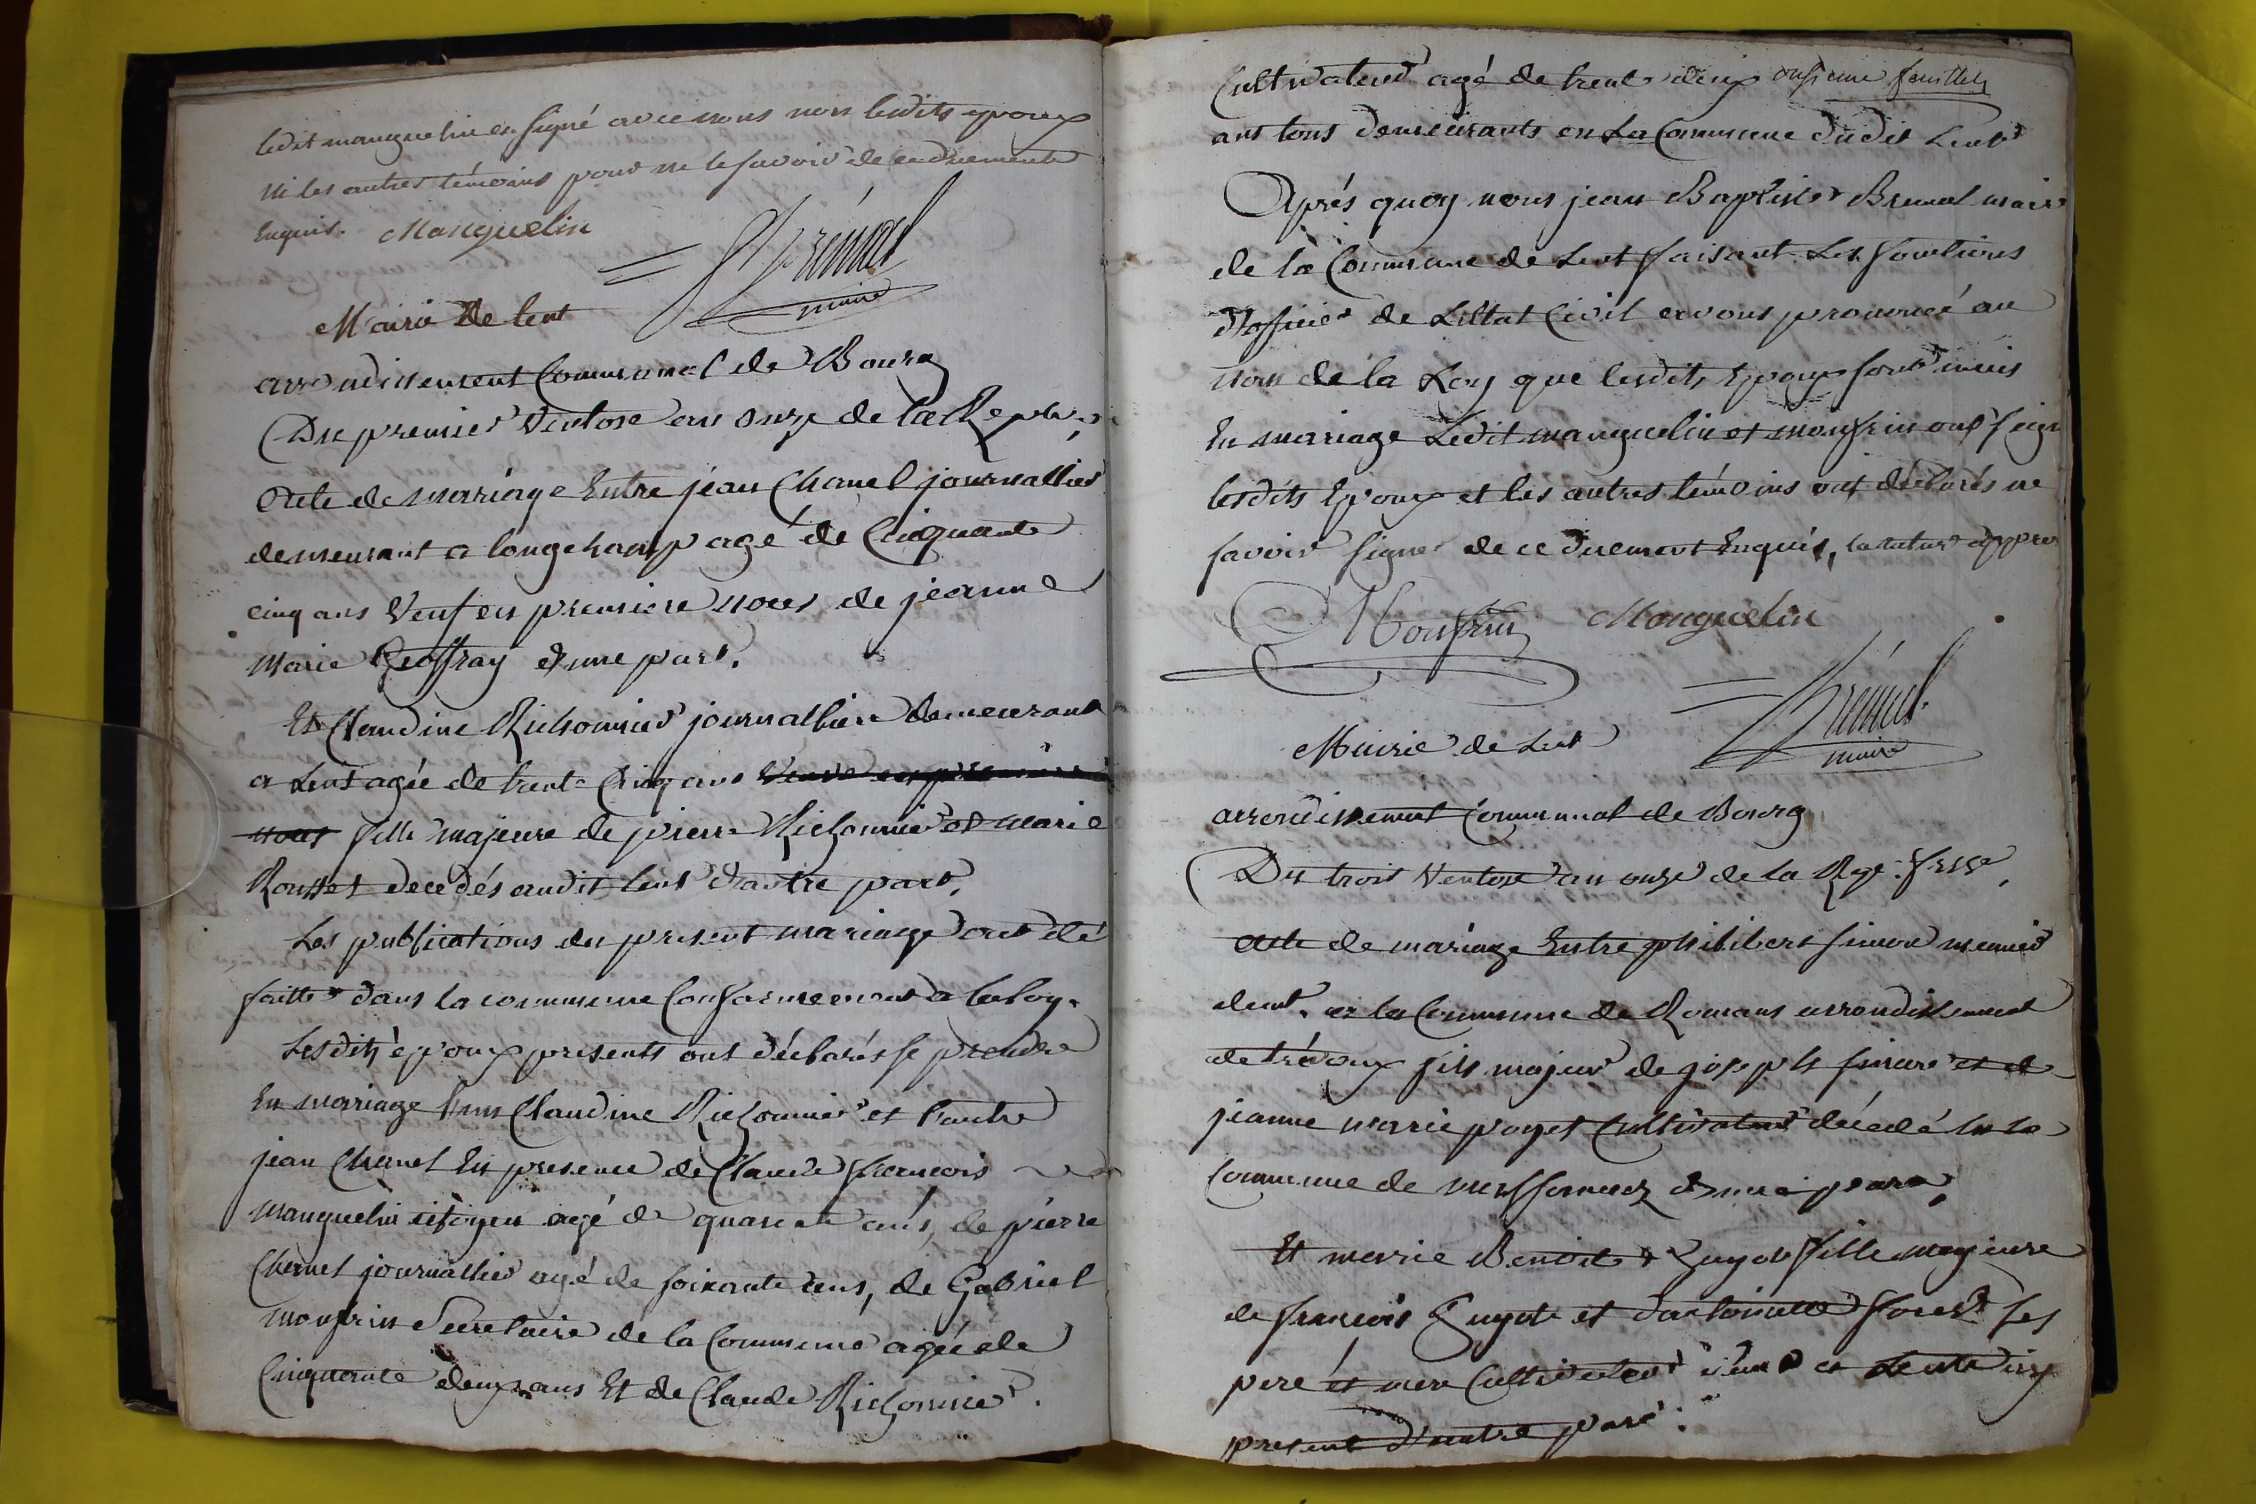 ledit manguelin a signé avec nous non lesdits epoux
ni les autres témoins pour ne le savoir de ce duement
Enquis. Manguelin
Brünel
maire
Mairie de lent
arrondissement Communal de Bourg
Du premier Ventose an onze de la Repu.
Acte de mariage Entre jean Chanel journallier
demeurant a longchamp agé de Cinquante
cinq ans Veuf en premiere noces de jeanne
Marie Geoffray d'une part.
Et Claudine Richonnier journalliere demeurant
a Lent agée de trente Cinq ans Veuve en premiere
noces fille majeure de pierre Richonnier et marie
Rousset decedés audit lent d'autre part.
Les publications du present mariage ont été
faittes dans la commune Conformement a la loy.
Lesdits époux presents ont déclarés se prendre
En mariage l'un Claudine Richonnier et l'autre
jean Chanel En presence de Claude françois
manguelin citoyen agé de quarente ans, de pierre
Chanel journallier agé de soixante ans, de Gabriel
monfrin Secretaire de la Commune agé de
Cinquante deux ans Et de Claude Richonnier
Cultivateur agé de trente deux onsieme feuillet
ans tous demeurants en La Commune dudit Lent
Aprés quoy nous jean Baptiste Brunel maire
de la Commune de Lent faisant Les fonctions
d'officier de L'Etat Civil avons prononcé au
nom de la Loy que lesdits Epoux sont unis
En mariage Ledit manguelin et monfrin ont signé
lesdits Epoux et les autres témoins ont déclarés ne
savoir signer de ce duement Enquis, la rature appro
Monfrin Manguelin
Brünel
maire
Mairie de Lent
arrondissement Communal de Bourg
Du trois Ventose an onze de la Rép. frse.
Acte de mariage Entre philibert simon meunier
demt. a la Commune de Romans arrondissement
de trévoux fils majeur de joseph simon et de
jeanne marie poyet Cultivateur décedé En la
Commune de d'une part,
Et marie Benoite Guyot fille majeure
de françois Guyot et d'antoinette foret ses
pere et mere Cultivateur demt a Lent icy
present d'autre part.